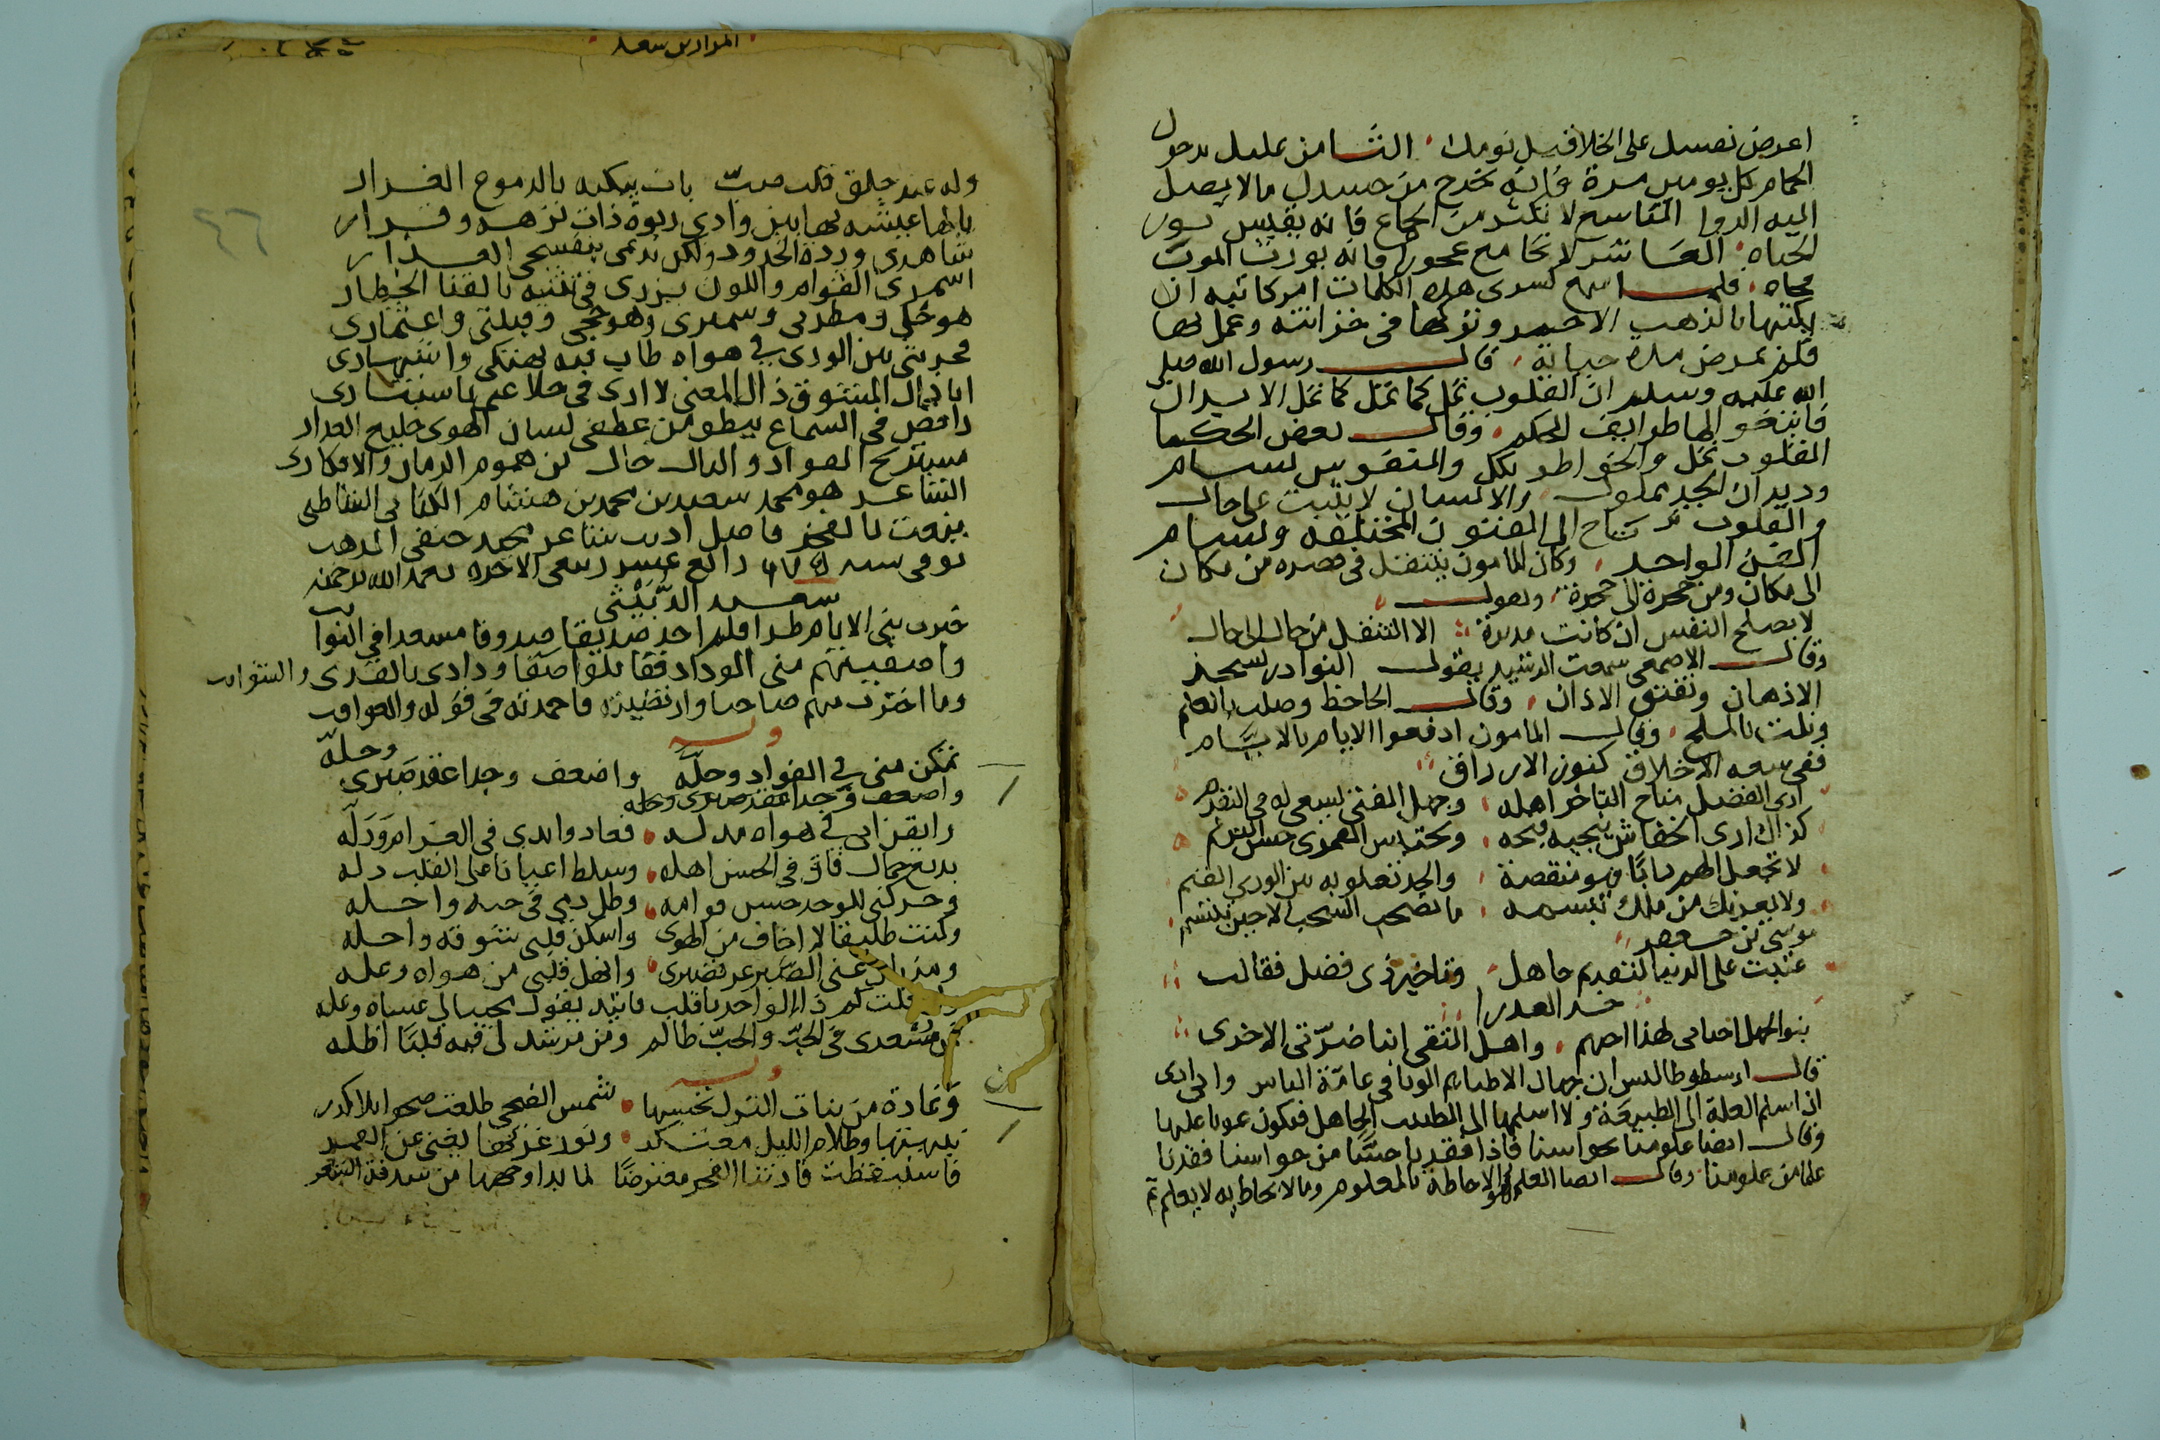 اعرض نفسك على الخلا قبل نومك الثامن عليك بدخول
الحمام كل يومين مرة فانه يخرج من جسدك ما لا يصل
اليه الدوا التاسع لا تكثر من الجماع فانه يقبس نور
الحياه العاشر لا تجامع عجوزا فانه يورث الموت
فجاه فلما سمع كسرى هذه الكلمات امر كاتبه ان
يكتبها بالذهب الاحمر وتركها في خزانته وعمل بها
فلم يمرض مدة حياته قال رسول الله صلى
الله عليه وسلم ان القلوب تمل كما تمل كما تمل الابدان
فابتغوا لها طرايف الحكم وقال بعض الحكما
القلوب تمل والخواطر تكل والنفوس تسام
وديدان الجد مملول والانسان لا يثبت على حال
والقلوب ترتاح الى الفنون المختلفه وتسام
الفن الواحد وكان المامون ينتقل في قصره من مكان
الى مكان ومن حجرة الى حجرة ويقول
لا يصلح النفس ان كانت مدبرة الا التنقل من حال الى حال
وقال الاصمعي سمعت الرشيد يقول النوادر تشحذ
الاذهان وتفتق الاذان وقال الجاحظ وصلت بالعلم
ونلت بالملح وقال المامون ادفعوا الايام بالايام
ففي سعه الاخلاق كنوز الارزاق
ارى الفضل مناح التاخر اهله وجهل الفتى يسعى له في التقدم
كذاك ارى الخفاش ينجيه قبحه ويحتبس القمري حسن الترنم
لا تجعل الهزل دابا فهو منقصة والجد تعلو به بين الورى القيم
ولا يغرنك من ملك تبسمه ما تضحك السحب الا حين تبتسم
موسى بن جعفر
عتبت على الدنيا لتقديم جاهل وتاخير ذى فضل فقالت
خذ العذرا
بنوا الجهل ابناى لهذا احبهم واهل التقى ابنا ضرتى الاخرى
قال ارسطوطاليس ان جهال الاطبا هم الوبا في عامة الناس واني ارى
ان اسلم العلة الى الطبيعة ولا اسلمها الى الطبيب الجاهل فيكون عونا عليها
وقال ايضا علومنا بحواسنا فاذا فقدنا حسا من حواسنا فقدنا
علما من علومنا وقال ايضا العلم هو الاحاطة بالمعلوم وما لا يحاط به لا يعلم
المواد بن سعد
٤٦
وله عند جلق قلب صب بات يبكيه بالدموع الغزار
يا لها عيشه بها بين وادي ربوة ذات نزهه وقرار
شاهدى وردة الخدود ولكن تدعى بنفسجى العذار
اسمرى القوام واللون يزرى في تثنيه بالقنا الخطار
هو خلى ومطربى وسميرى وهو حجى وقبلتى واعتمارى
محرمتى بين الورى في هواه طاب فيه تهتكى واشتهارى
انا ذاك المشوق ذاك المعنى لا ارى في خلاعتى باستتارى
راقص في السماع يسطو من عطفى لسان الهوى خليع العذار
مستريح الفواد والبال خال من هموم الزمان والافكارى
الشاعر هو محمد سعيد بن محمد بن هشام الكنانى الشاطبى
ينعت بالفخر فاضل اديب شاعر مجيد حنفى المذهب
توفى سنة ٦٧٥ رابع عشر ربيع الاخره تغمده الله برحمته
سعيد الدبيثى
خبرت بنى الايام طرا فلم اجد صديقا صدوقا مسعدا في النوايب
واصفيتهم منى الوداد فقابلوا صفا ودادى بالقذى والشوايب
وما اخترت منهم صاحبا وارتضيته فاحمدته في فعله والعواقب
وله
تمكن منى في الفواد وحله واضعف وجدا عقد صبرى وحله
واضعف وجدا عقد صبرى وحله
رايق زاني في هواه مدله فعاد والدى في الغرام وذله
بديع جمال فاق في الحسن اهله وسلط اعيانا على القلب دله
وحركنى للوجد حسن قوامه وطل دمى في حبه واحله
وكنت طليقا لا اخاف من الهوى واسكن قلبى شوقه واحله
ومذ بان عنى الصبر عز تصبرى وانهل قلبى من هواه وعله
وان قلت كم ذا الواجد يا قلب فاتئد يقول مجيبا لى عساه وعله
فمن مسعدى في الحب والحب ظالم ومن مرشد لى فيه قلبا اظله
وله
وغادة من بنات الترك تحسبها شمس الضحى طلعت صحوا بلا كدر
نبهتها وظلام الليل معتكر ونور غرتها يغنى عن القمر
فاستيقظت فارتنا الفجر معترضا لما بدا وجهها من سدفة الشعر